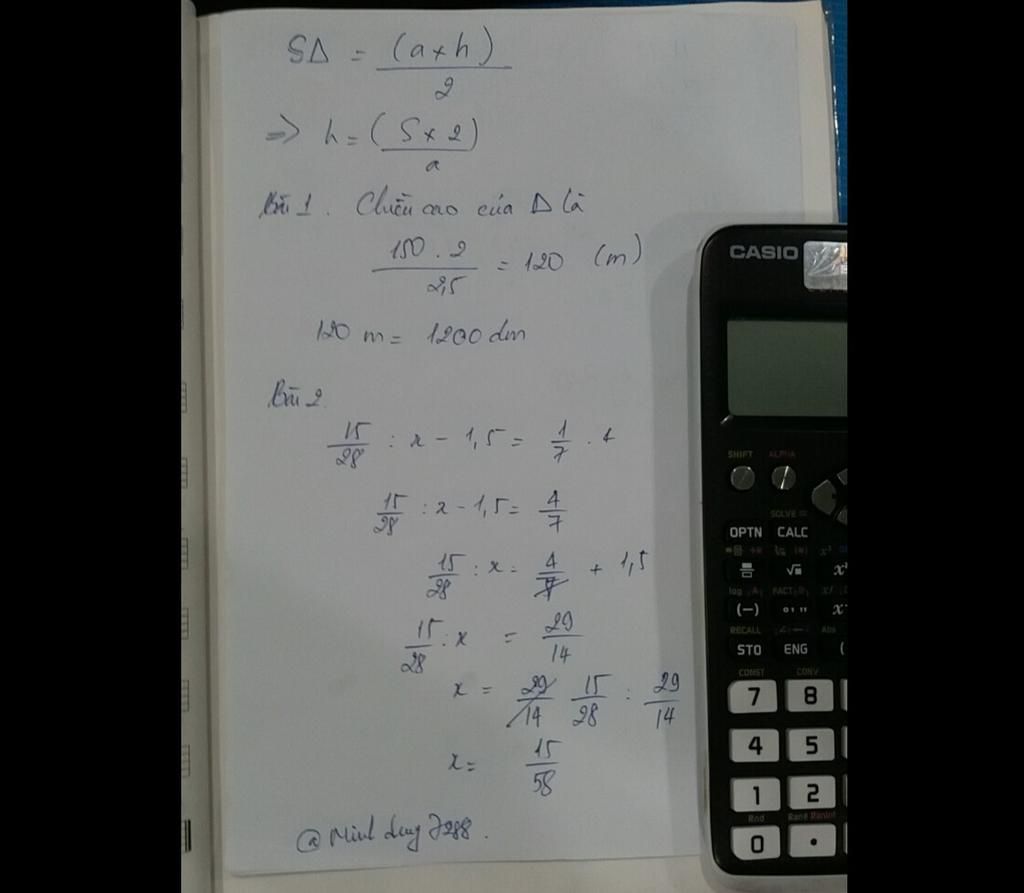 SΔ = (a x h) / 2
=> h = (S x 2) / a
Bài 1. Chiều cao của Δ là
150 . 2 / 2,5 = 120 (m)
120 m = 1200 dm
Bài 2
15/28 : x - 1,5 = 1/7 . 4
15/28 : x - 1,5 = 4/7
15/28 : x = 4/7 + 1,5
15/28 : x = 29/14
x = 29/14 15/28 : 29/14
x = 15/58
CASIO
SHIFT ALPHA
SOLVE =
OPTN CALC
(-)
RECALL
STO ENG (
CONST CONV
7 8
4 5
1 2
Rnd Ran# RanInt
0 .